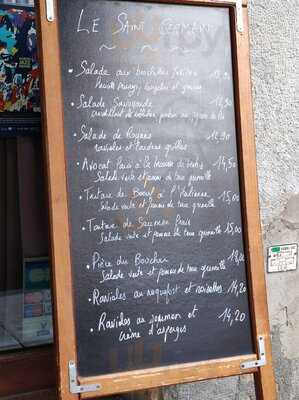 LE SAINT GERMAIN
Salade aux brochettes
Salade Savoyarde 12,90
Salade de Royans 12,90
ravioles et lardons grillés
Avocat Paris à la mousse de 14,50
Salade verte et pomme de terre grenaille
Tartare de Boeuf à l'italienne 15,00
Salade verte et pomme de terre grenaille
Tartare de Saumon frais 15,00
Salade verte et pomme de terre grenaille
Pièce du Boucher 18,00
Salade verte et pomme de terre grenaille
Ravioles au roquefort et noisettes 14,20
Ravioles au saumon et 14,20
crème d'asperges